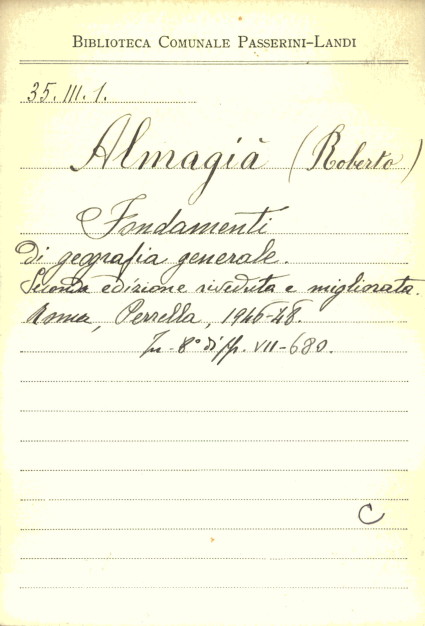 BIBLIOTECA COMUNALE PASSERINI-LANDI
35. III. 1.
Almagià (Roberto)
Fondamenti
di geografia generale.
Seconda edizione riveduta e migliorata.
Roma, Perrella, 1946-48.
In 8° di pp. VII-680.
C